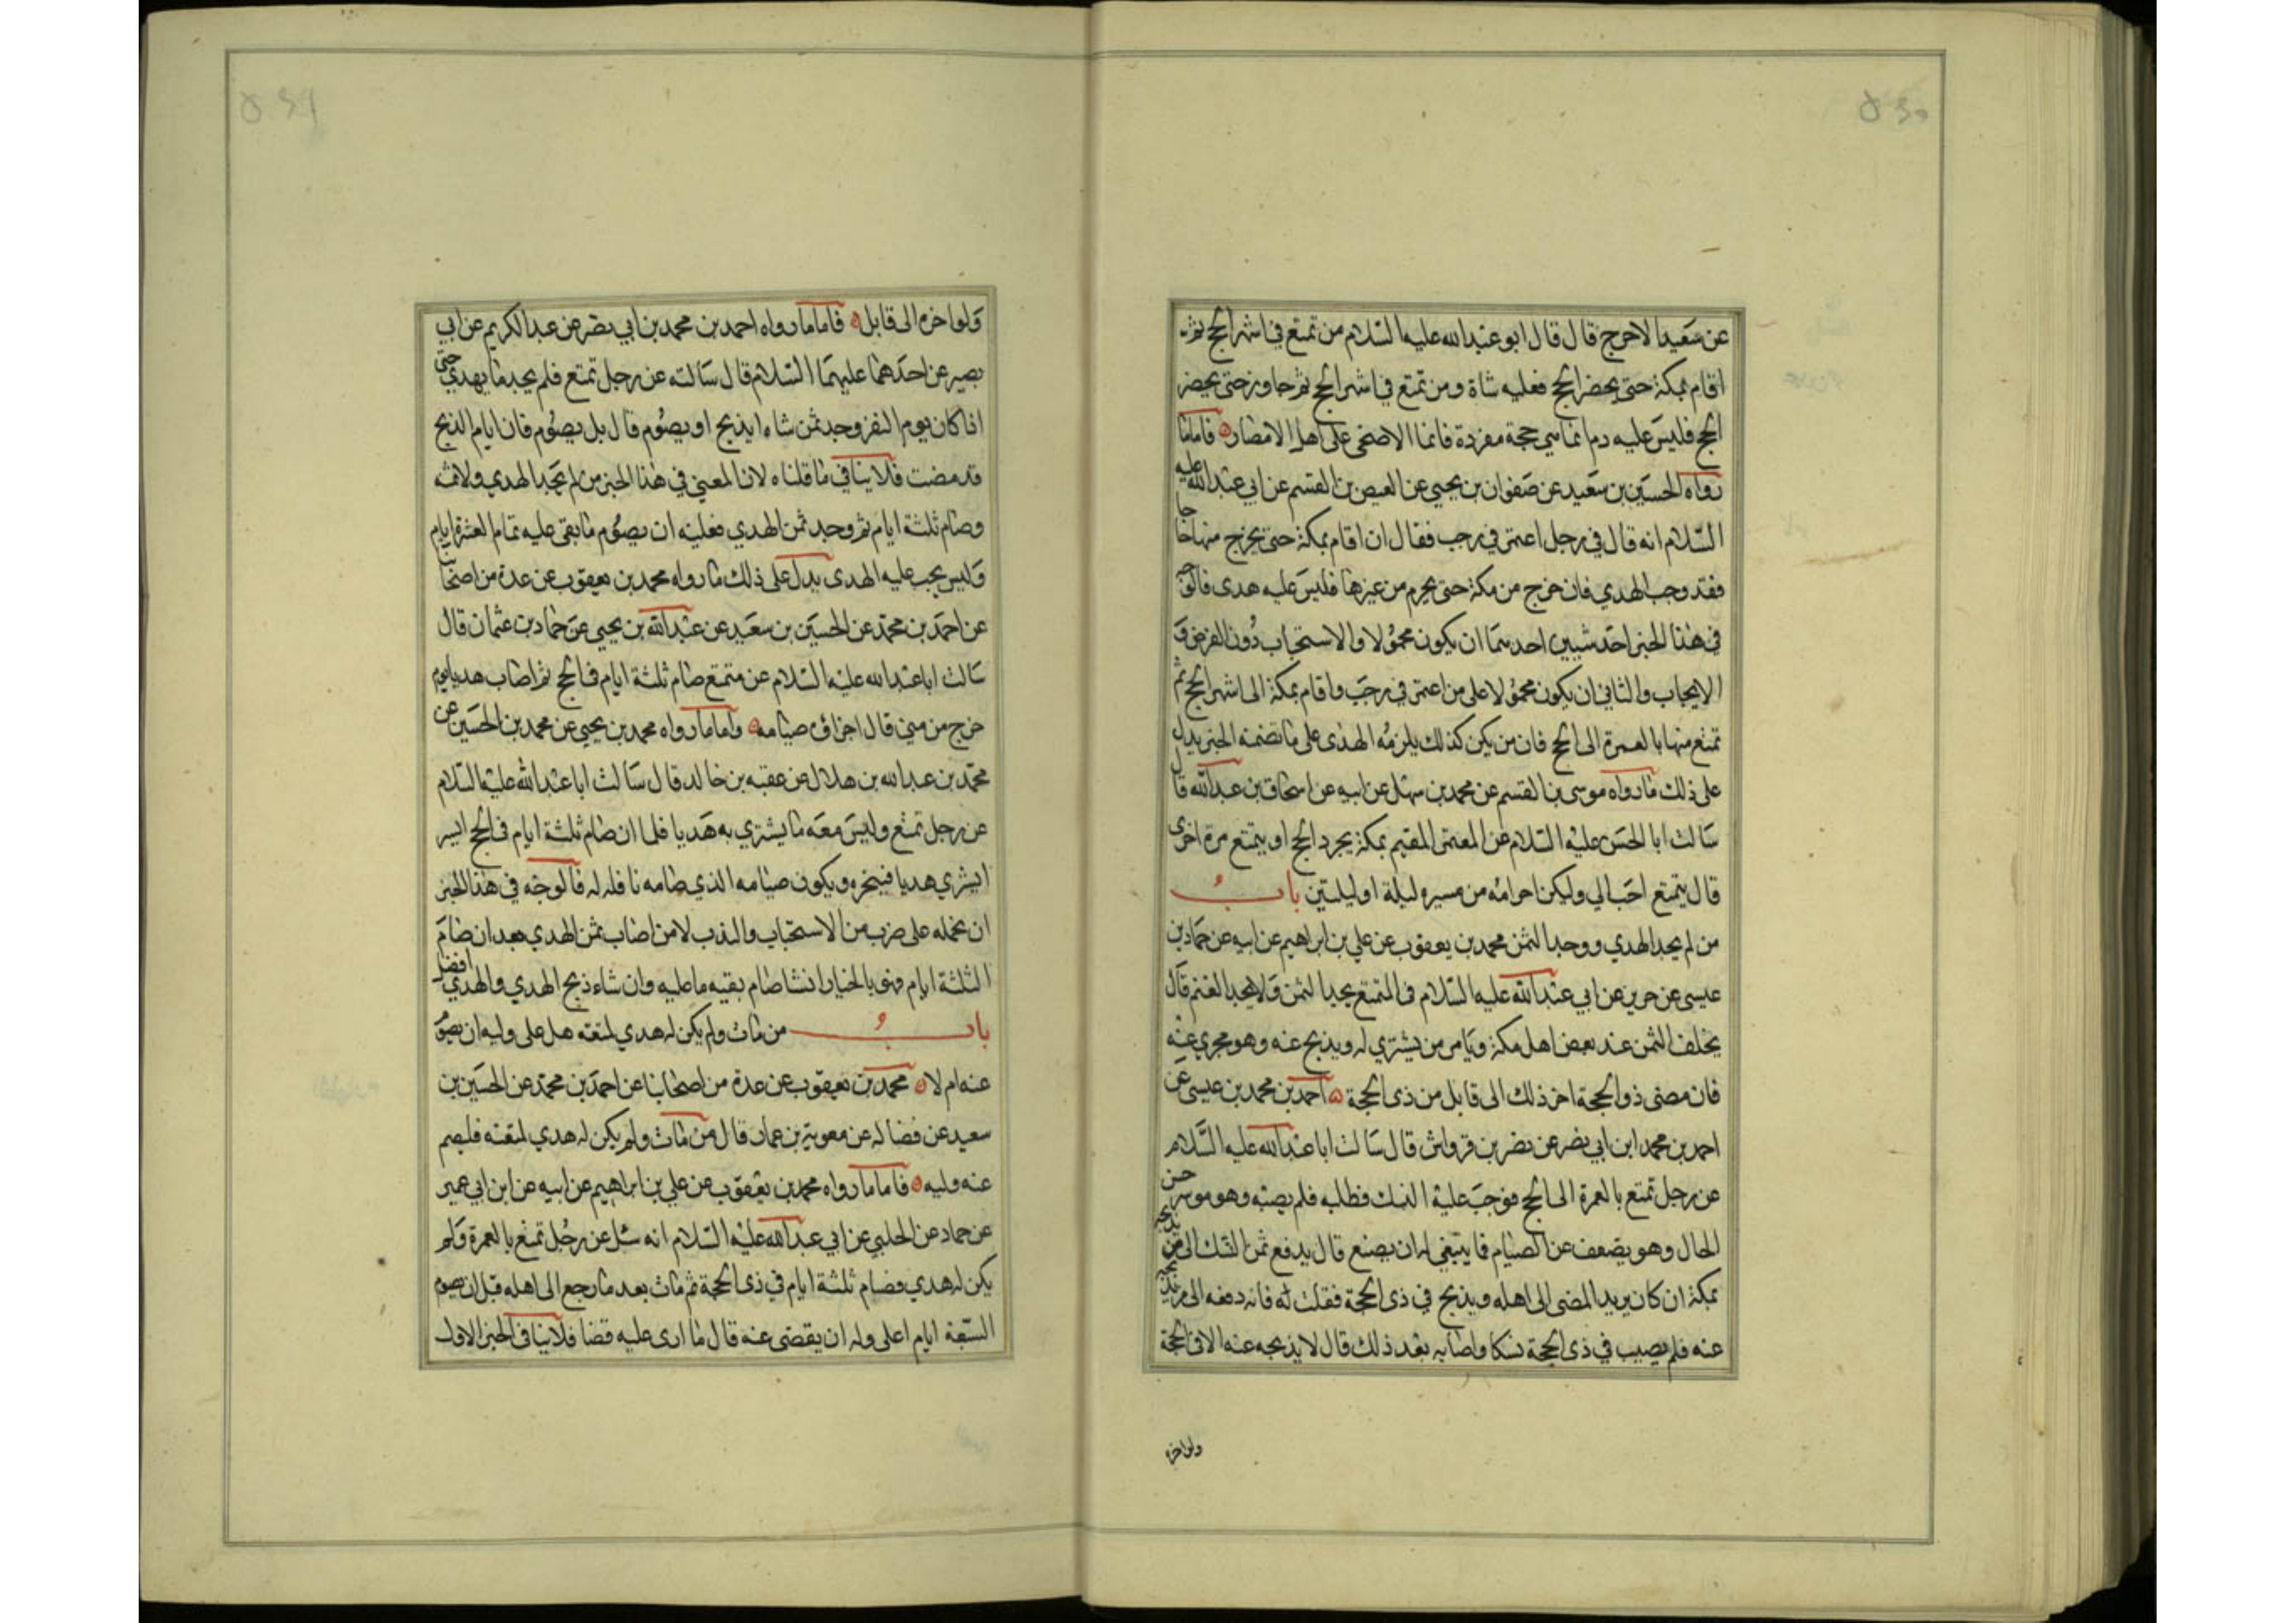 عن سعيد الاعرج قال قال ابو عبدالله عليه السلام من تمتع في اشهر الحج ثم
اقام بمكة حتى يحضر الحج فعليه شاة ومن تمتع في اشهر الحج ثم جاوز حتى يحضر
الحج فليس عليه دم انما هي حجة مفردة فانما الاضحى على اهل الامصار فاما ما
رواه الحسين بن سعيد عن صفوان بن يحيى عن العيص بن القسم عن ابي عبدالله عليه
السلام انه قال في رجل اعتمر في رجب فقال ان اقام بمكة حتى يخرج منها حاجا
فقد وجب الهدي فان خرج من مكة حتى يحرم من غيرها فليس عليه هدى فالوجه
في هذا الخبر احد شيين احدهما ان يكون محمولا والاستحباب دون الفرض و
الايجاب والثاني ان يكون محمولا على من اعتمر في رجب واقام بمكة الى اشهر الحج ثم
تمتع منها بالعمرة الى الحج فان من يكن كذلك يلزمه الهدى على ما تضمنه الخبر يدل
على ذلك ما رواه موسى بن القسم عن محمد بن سهل عن ابيه عن اسحاق بن عبدالله قال
سالت ابا الحسن عليه السلام عن المعتمر المقيم بمكة يجرد الحج او يتمتع مرة اخرى
قال يتمتع احب الي وليكن احرامه من مسيره ليلة او ليلتين باب
من لم يجد الهدي ووجد الثمن محمد بن يعقوب عن علي بن ابراهيم عن ابيه عن حماد بن
عيسى عن حريز عن ابي عبدالله عليه السلام في المتمتع يجد الثمن ولا يجد الغنم قال
يخلف الثمن عند بعض اهل مكة ويامر من يشتري له ويذبح عنه وهو مجري عنه
فان مضى ذو الحجة اخر ذلك الى قابل من ذى الحجة احمد بن محمد بن عيسى عن
احمد بن محمد ابن ابي نصر عن نضر بن قرواش قال سالت ابا عبدالله عليه السلام
عن رجل تمتع بالعمرة الى الحج فوجب عليه النسك فطلبه فلم يصبه وهو موسر حسن
الحال وهو يضعف عن الصيام فما ينبغي له ان يصنع قال يدفع ثمن النسك الى من يذبحه
بمكة ان كان يريد المضى الى اهله ويذبح في ذى الحجة فقلت له فانه دفعه الى من يذبحه
عنه فلم يصيب في ذى الحجة نسكا واصابه بعد ذلك قال لا يذبحه عنه الا في الحجة
ولو اخره
ولو اخره الى قابل فاما ما رواه احمد بن محمد بن ابي نصر عن عبدالكريم عن ابي
بصير عن احدهما عليهما السلام قال سالته عن رجل تمتع فلم يجد ما يهدي حتى
اذا كان يوم النفر وجد ثمن شاه ايذبح او يصوم قال بل يصوم فان ايام الذبح
قد مضت فلا ينافي ما قلناه لان المعني في هذا الخبر من لم يجد الهدي ولا ثمنه
وصام ثلثة ايام ثم وجد ثمن الهدي فعليه ان يصوم ما بقى عليه تمام العشرة ايام
وليس يجب عليه الهدى يدل على ذلك ما رواه محمد بن يعقوب عن عدة من اصحابنا
عن احمد بن محمد عن الحسين بن سعيد عن عبدالله بن يحيى عن حماد بن عثمان قال
سالت ابا عبدالله عليه السلام عن متمتع صام ثلثة ايام في الحج ثم اصاب هديا يوم
خرج من منى قال اجزاه صيامه واما ما رواه محمد بن يحيى عن محمد بن الحسين عن
محمد بن عبدالله بن هلال عن عقبه بن خالد قال سالت ابا عبدالله عليه السلام
عن رجل تمتع وليس معه ما يشتري به هديا فلما ان صام ثلثة ايام في الحج ايسر
ايشري هديا فينحره ويكون صيامه الذي صامه نافله له فالوجه في هذا الخبر
ان نحمله على ضرب من الاستحباب والندب لا من اصاب ثمن الهدي بعد ان صام
الثلثة ايام فهو بالخيار ان شا صام بقيه ما عليه وان شاء ذبح الهدي والهدي افضل
باب من مات ولم يكن له هدي لمتعته هل على وليه ان يصوم
عنه ام لا محمد بن يعقوب عن عدة من اصحابنا عن احمد بن محمد عن الحسين بن
سعيد عن فضاله عن معوية بن عمار قال من مات ولم يكن له هدي لمتعته فليصم
عنه وليه فاما ما رواه محمد بن يعقوب عن علي بن ابراهيم عن ابيه عن ابن ابي عمير
عن حماد عن الحلبي عن ابي عبدالله عليه السلام انه سئل عن رجل تمتع بالعمرة ولم
يكن له هدي فصام ثلثة ايام في ذى الحجة ثم مات بعد ما رجع الى اهله قبل ان يصوم
السبعة ايام اعلى وليه ان يقضى عنه قال ما ارى عليه قضا فلا ينافي الخبر الاول